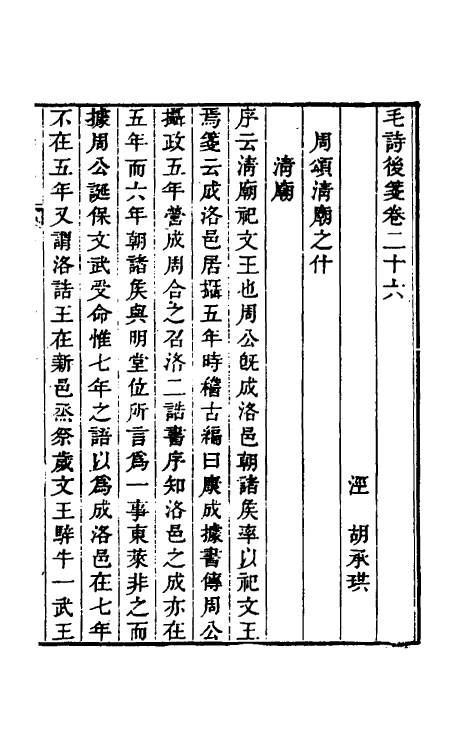 毛詩後箋卷二十六
涇　胡承珙
周頌清廟之什
清廟
序云清廟祀文王也周公旣成洛邑朝諸矦率以祀文王
焉箋云成洛邑居攝五年時稽古編曰康成據書傳周公
攝政五年營成周合之召洛二誥書序知洛邑之成亦在
五年而六年朝諸矦與明堂位所言爲一事東萊非之而
據周公誕保文武受命惟七年之語以爲成洛邑在七年
不在五年又謂洛誥王在新邑烝祭歲文王騂牛一武王